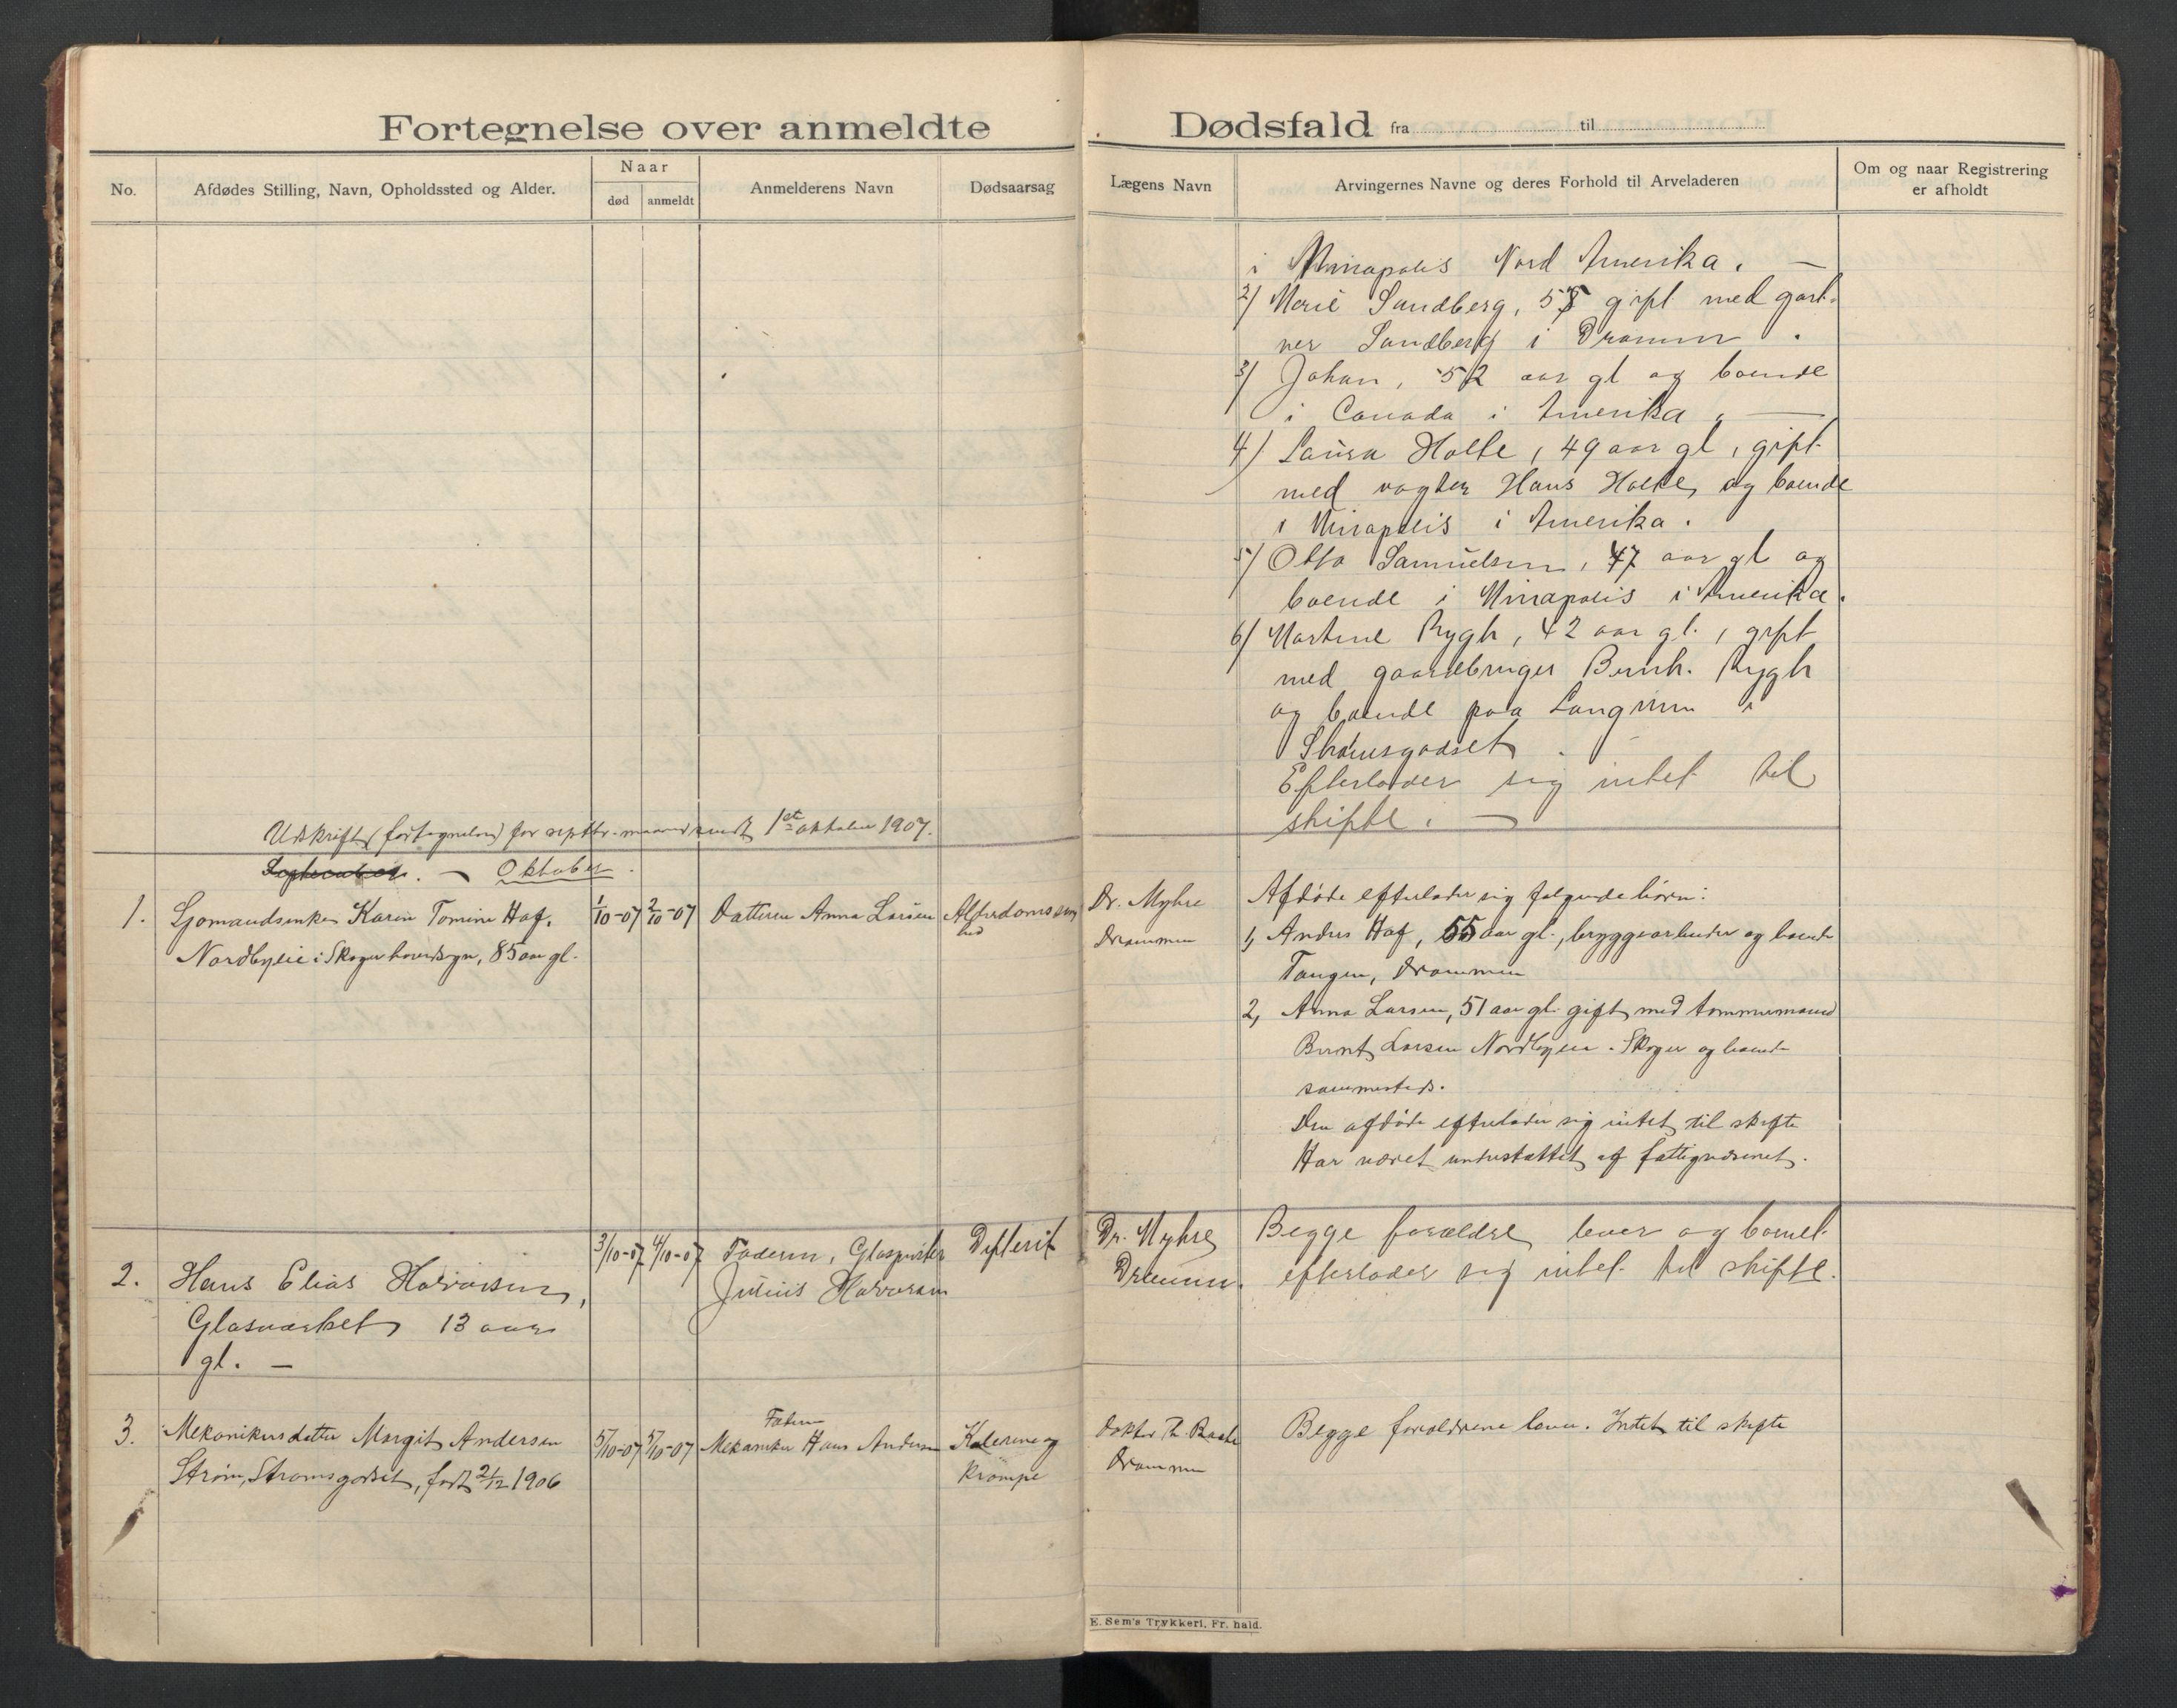 Fortegnelse over anmeldte
Dødsfald fra til
No.
Afdødes Stilling, Navn, Opholdssted og Alder.
Naar
død
anmeldt
Anmelderens Navn
Dødsaarsag
Lægens Navn
Arvingernes Navne og deres Forhold til Arveladeren
Om og naar Registrering
er afholdt
i Minapolis Nord Amerika. —
2) Marie Sandberg, gift med gart-
ner Sandberg i Drammen.
3) Johan, 52 aar gl og boende
i Canada i Amerika. —
4) Laura Holte, 49 aar gl, gift
med vogter Hans Holte og boende
i Minapolis i Amerika.
5) Otto Samuelsen, 47 aar gl og
boende i Minapolis i Amerika.
6) Martine Rygh, 42 aar gl., gift
med gaardbruger Bernh. Rygh
og boende paa i
Strømsgodset.
Efterlader sig intet til
skifte. —
Udskrift (fortegnelse) for septbr. maaned sendt 1ste oktober 1907.
September. — Oktober.
1.
Sjømandsenke Karen Tomine Haf,
Nordbyeie i Skoger hovedsogn, 85 aar gl.
1/10-07
2/10-07
Datteren Anna Larsen
Alderdomssvag
hed
Dr. Myhre
Drammen
Afdøde efterlader sig følgende børn:
1, Anders Haf, 55 aar gl., bryggearbeider og boende
Tangen, Drammen
2, Anna Larsen, 51 aar gl. gift med tømmermand
Bernt Larsen Nordbyeie i Skoger og boende
sammesteds.
Den afdøde efterlader sig intet til skifte
Har været understøttet af fattigvæsenet.
2.
Hans Elias Halvorsen,
Glasværket 13 aar
gl. —
3/10-07
4/10-07
Faderen, Glaspuster
Julius Halvorsen
Difterit
Dr. Myhre
Drammen.
Begge forældre lever og barnet
efterlader sig intet til skifte.
3.
Mekanikerdatter Margit Andersen
Strøm, Strømsgodset, født 2/12 1906
5/10-07
5/10-07
Faderen
Mekaniker Hans Andersen
Kolerine og
krampe
Doktor
Drammen
Begge forældrene lever. Intet til skifte
E. Sem's Trykkeri, Fr. hald.